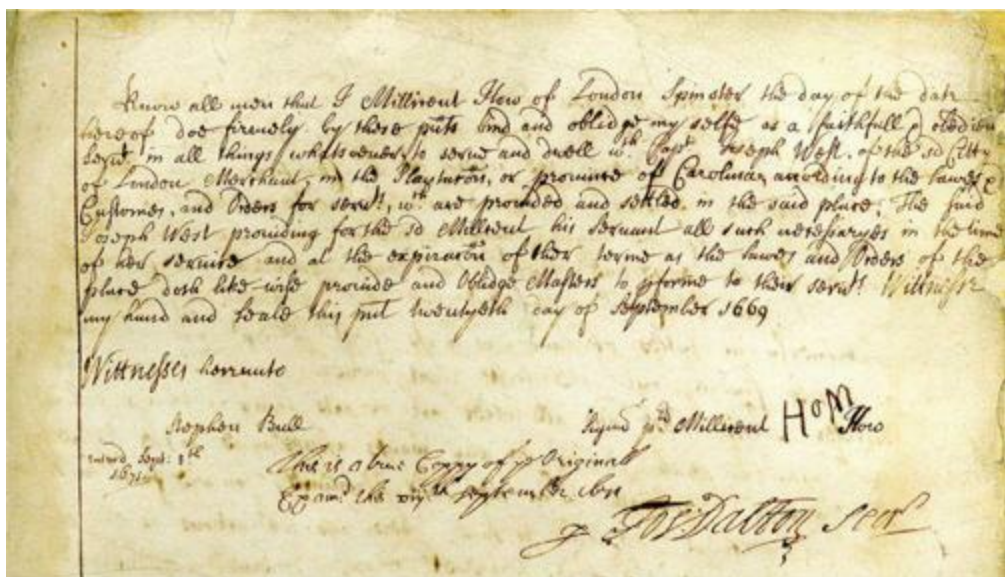 Know all men that I Millicent How of London Spinster the day of the date
hereof doe firmely by these pnts bind and oblidge my selfe as a faithfull & obedient
Servt. in all things whatsoever, to serve and dwell wth. Capt. Joseph West, of the sd Citty
of London Merchant, in the Plantacon, or province of Carolina, according to the Lawes
Customes, and Orders for servts, wch. are provided and setled, in the said place; The said
Joseph West providing for the sd Millicent his Servant all such necessaryes in the time
of her service and at the expiracon of ther terme as the lawes and Orders of the
place doth like wise provide and Oblidge Masters to pforme to their servts Wittnesse
my hand and Seale this pnt twentyeth day of September 1669
Wittnesses hereunto
Stephen Bull
Signed Millicent HoM How
Sept: 8th
1671
This is a true Coppy of ye Originall
Examd the September 1671
p Jos: Dalton Secr